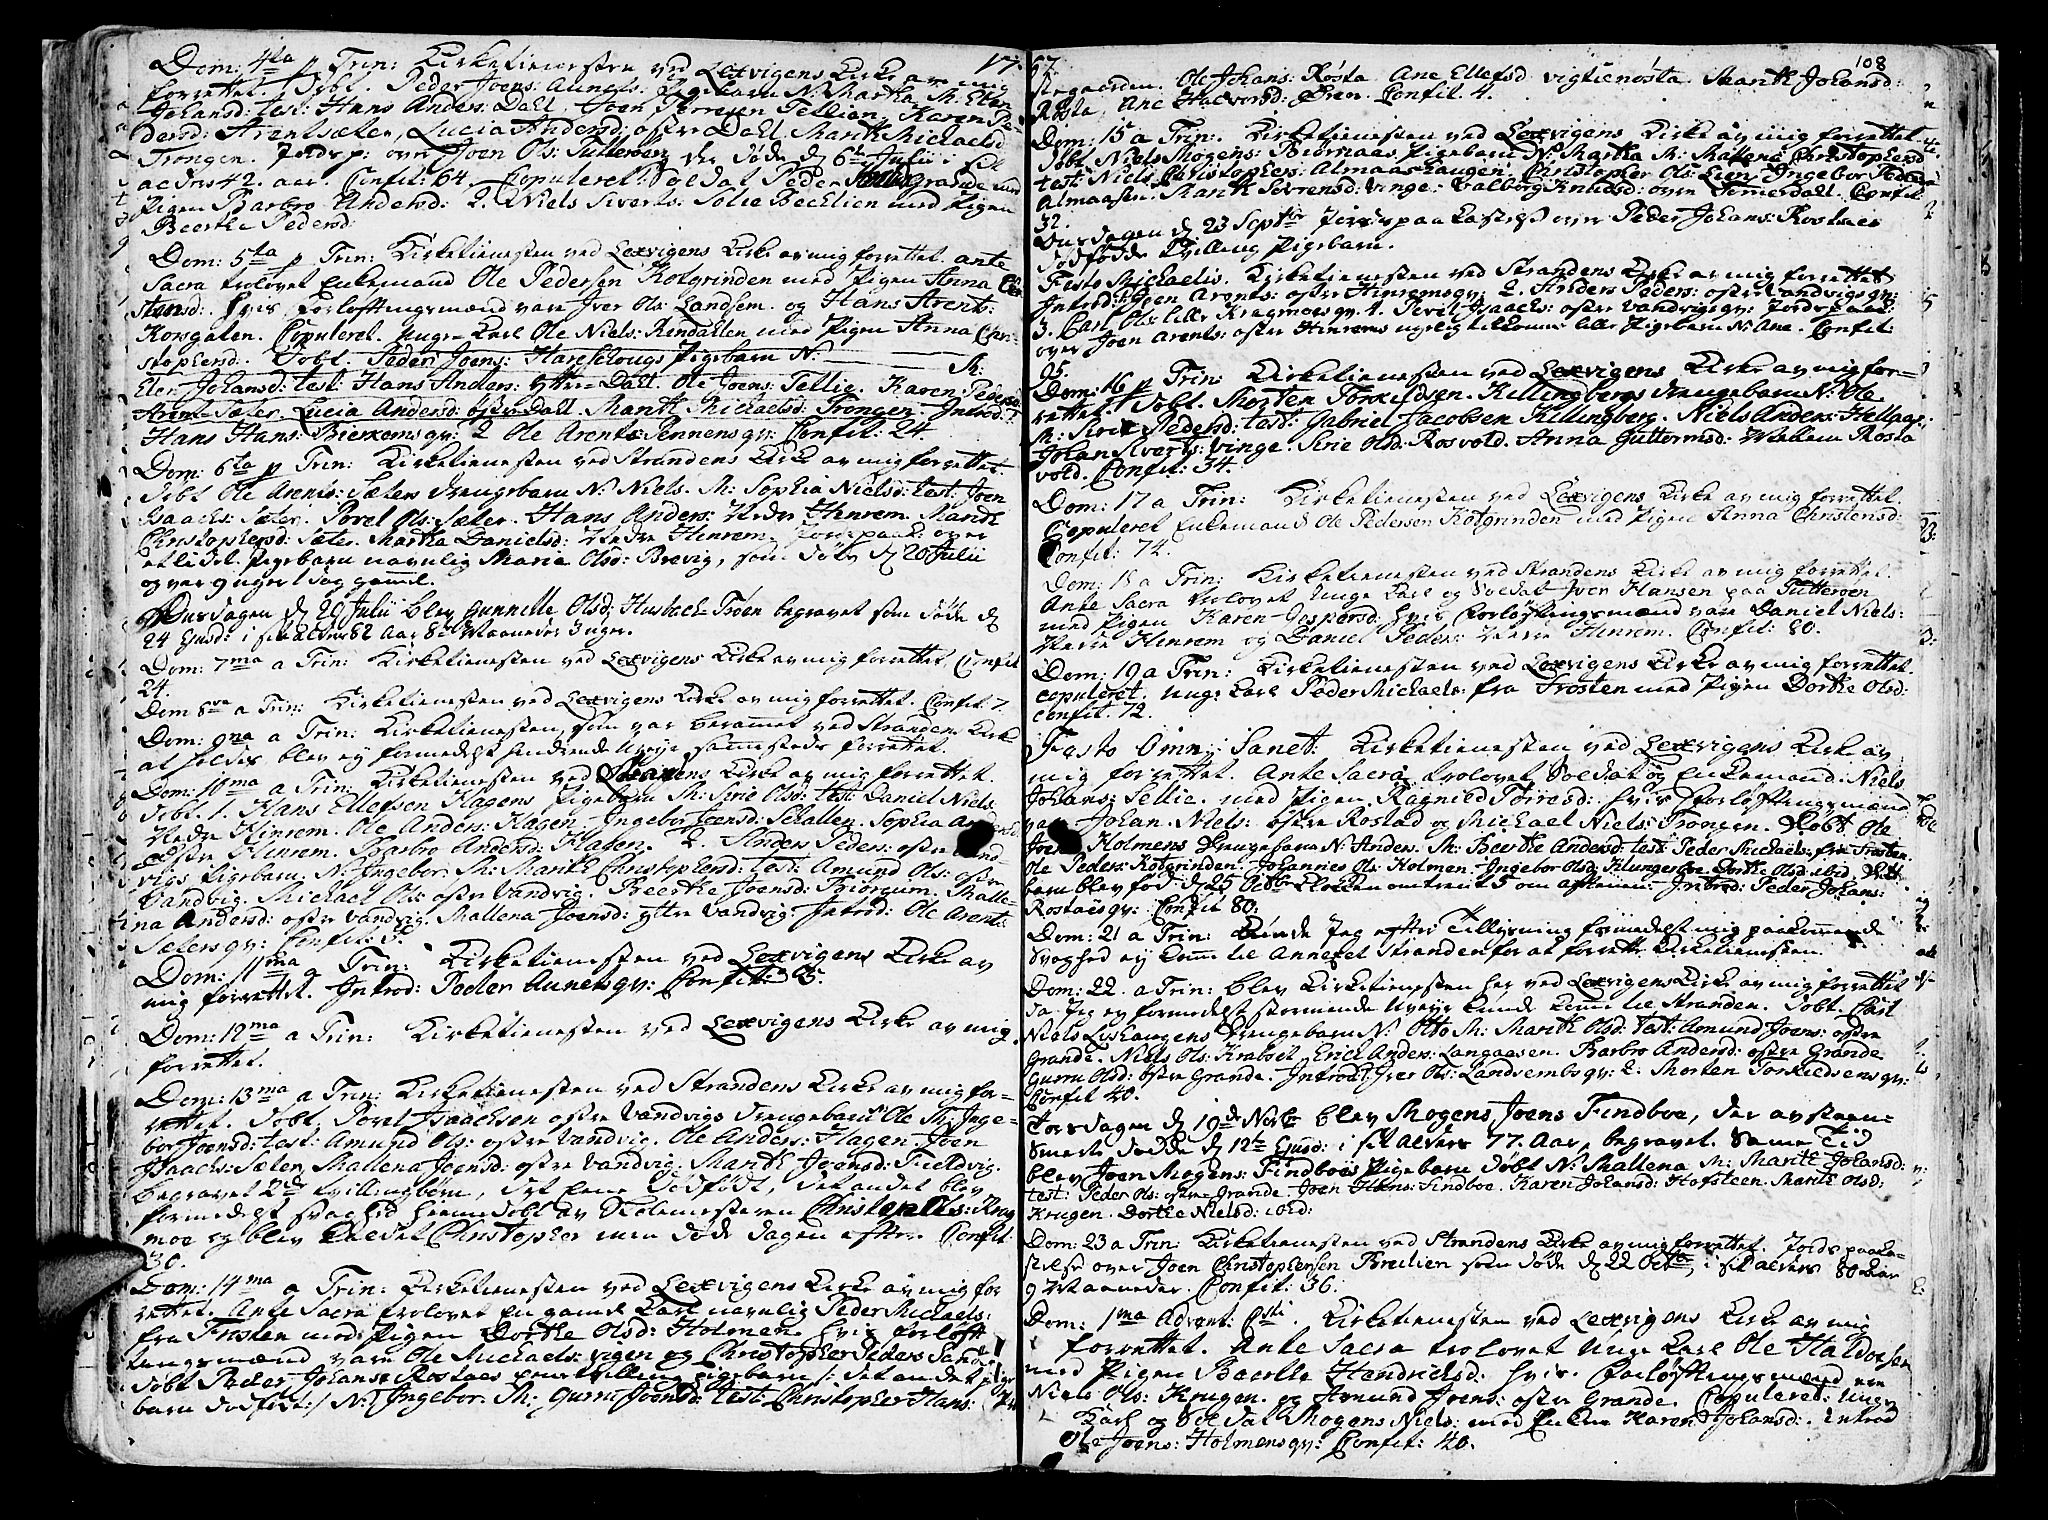 17
Dom: 4ta p Trin: Kirketienesten ved Lexvigens Kirke av mig
forrettet. Døbt. Peder Joens: Aunets: Pigebarn N: Martha. M: Elen
Johansd: test: Hans Anders: Dahl, Joen Tellien, Karen Pe-
dersd: Arentsæter, Lucia Andersd: østre Dahl, Marith Michaelsd
Trongen. Jordsp: over Joen Ols: Tutteroen der døde d 6te Julii i sit
alders 42. aar. Confit: 64. Copuleret: Soldat Peder Grande med
Pigen Barbro Andersd: 2. Niels Siverts: Solie Bechlien med Pigen
Beerthe Pedersd:
Dom: 5ta p Trin: Kirketienesten ved Lexvigens Kirke av mig forrettet. ante
Sacra trolovet Enkemand Ole Pedersen Kotgrinden med Pigen Anna Chri
stensd: hvis Forloftningsmænd vare Iver Ols: Landsem. og Hans Arent:
Korsgaten. Copuleret. Unge Karl Ole Niels: Rendahlen med Pigen Anna Chri-
stophersd: Døbt Peder Joens: Hareschougs Pigebarn N: M:
Elen Johansd: test: Hans Anders: yttre Dahl. Ole Joens: Tellie. Karen Pedersd:
Arent Sæter. Lucia Andersd: østre Dahl. Marith Michaelsd: Trongen. Introd:
Hans Hans: Bierkemsqv: 2 Ole Arents: Pennensqv: Confit: 24.
Dom: 6ta p Trin: Kirketienesten ved Strandens Kirke av mig forrettet.
Døbt Ole Arents: Sæters Drengebarn N: Niels. M: Sophia Nielsd: test: Joen
Isaachs: Sæter. Povel Ols: Sæter. Hans Anders: Nedre Hinrem. Marith
Christophersd: Sæter. Martha Danielsd: Nedre Hinrem. Jordspaak: over
et lidet Pigebarn navnlig Maria Olsd: Brevig, som døde d 20 Julii
og var 9 uger 1 dag gamel.
Onsdagen d 29 Julii blev Gunnille Olsd: Husbach-Trøen begravet som døde d
24 Ejusd: i sit alders 82 Aar 8 Maaneder 3 uger.
Dom: 7ma a Trin: Kirketienesten ved Lexvigens Kirke av mig forrettet. Confit
24.
Dom 8va a Trin: Kirketienesten ved Lexvigens Kirke av mig forrettet. Confit. 7.
Dom: 9na a Trin: Kirketienesten, som var berammet ved Strandens Kirke
at holdes blev ey formedelst hindrende Uveyr sammesteds forrettet.
Dom: 10ma a Trin: Kirketienesten ved Strandens Kirke av mig forrettet.
Døbt. 1. Hans Ellefsen Hagens Pigebarn M: Sirie Olsd: test: Daniel Niels
Nedre Hinrem. Ole Anders: Hagen, Ingebor Joensd: Schallen. Sophia Andersd:
østre Hinrem. Barbro Andersd: Hagen. 2. Anders Peders: østre Vand
vigs Pigebarn. N: Ingebor. M: Marith Christophersd: test: Amund Ols: østre
Vandvig. Michael Ols: østre Vandvig. Beerthe Joensd: Biorgum. Malle-
na Andersd: østre Vandvig. Mallena Joensd: yttre Vandvig. Introd: Ole Arents:
Setersqv: Confit: 5.
Dom: 11ma a Trin: Kirketienesten ved Lexvigens Kirke av
mig forrettet. Introd: Peder Aunetsqv: Confit: 25.
Dom: 12ma a Trin: Kirketienesten ved Lexvigens Kirke av mig
forrettet.
Dom: 13ma a Trin: Kirketienesten ved Strandens Kirke av mig for-
rettet. Døbt. Povel Isaachsen østre Vandvigs Drengebarn Ole M: Inge-
bor Joensd: test: Amund Ols: østre Vandvig. Ole Anders: Hagen. Joen
Isaachs: Sæter, Mallena Joensd: østre Vandvig. Marith Joensd: Fieldvig.
begravet 2de tvillingbørn, det eene dødfødt, det andet blev
formedelst svaghed hiemedøbt av Skolemesteren Christen Ols: Krog
moe og blev kaldet Christopher men døde dagen efter. Confit:
30.
Dom: 14ma a Trin: Kirketienesten ved Lexvigens Kirke av mig for
rettet. Ante Sacra trolovet En gamel Karl navnlig Peder Michaels:
fra Frosten med Pigen Dorthe Olsd: Holmen. hvis forløft
tningsmænd vare Ole Michaels: vigen og Christopher Peders Sande
døbt Peder Johans: Rostaes eene tvilling pigebarn /: det andet pige
barn dødfødt :/ N: Ingebor. M: Guru Joensd: test: Christopher Hans:
67.
108
Ole Johans: Røsta Ane Ellefsd vigtienøsta. Marith Johansd:
Røsta, Ane Halvorsd: Øren. Confit. 4.
Dom: 15 a Trin: Kirketienesten ved Lexvigens Kirke av mig forrettet
Døbt Niels Mogens: Biørnaas Pigebarn N: Martha M: Mallena Christophersd
test: Niels Christophers: Almaashaugen. Christopher Ols: Lien, Ingebor Pedersd:
Almaasen. Marith Sevrensd: Vinge: Valborg Knudsd: øvre Sumerdahl. Confit
32.
Onsdagen d 23 Septbr Jordspaakastelse over Peder Johans: Rostaes
dødfødde Tvilling Pigebarn.
Festo Michaelis. Kirketienesten ved Strandens Kirke av mig forrettet
Introd: Joen Arents: østre Hinremsqv: 2. Anders Peders: østre Vandvigsqv:
3. Carl Ols: lille Kragmoesqv: 4. Povel Isaachs: østre Vandvigsqv: Jordspaak:
over Joen Arents: østre Hinrems nylig tilkomne lille Pigebarn N: Ane. Confit:
95.
Dom: 16 p Trin: Kirketienesten ved Lexvigens Kirke av mig for-
rettet. Døbt. Morten Torkildsen Killingbergs Drengebarn N: Ole
M: Siri Pedersd: test: Gabriel Jacobsen Killingberg. Niels Anders: Hellaas:
Johan Siverts: Vinge: Sirie Olsd: Rosvold. Anna Guttormsd: Mellem Rosta
vold. Confit: 34.
Dom: 17 a Trin: Kirketienesten ved Lexvigens Kirke av mig forrettet.
Copuleret Enkemand Ole Pedersen Kotgrinden med Pigen Anna Christensd:
Confit: 74.
Dom: 18 a Trin: Kirketienesten ved Strandens Kirke av mig forrettet.
Ante Sacra trolovet Unge Karl og Soldat Iver Hansen paa Tutteroen
med Pigen Karen Jespersd: hvis Forløftningsmænd vare Daniel Niels:
Nedre Hinrem og Daniel Peders: Nedre Hinrem. Confit: 80.
Dom: 19 a Trin: Kirketienesten ved Lexvigens Kirke av mig forrettet.
copuleret. unge Karl Peder Michaels: fra Frosten med Pigen Dorthe Olsd:
Confit: 72.
Festo Omn: Sanct: Kirketienesten ved Lexvigens Kirke av
mig forrettet. Ante Sacra trolovet Soldat og Enkemand: Niels
Johans: Sellie. med Pigen Ragnild Torresd: hvis Forløftningsmænd
vare Johan Niels: østre Rostad og Michael Niels: Trongen. Døbt. Ole
Joens Holmens Drengebarn N: Anders. M: Beerthe Andersd: test: Peder Michaels: fra Frosten
Ole Peders: Kotgrinden. Johannes Ols: Holmen. Ingebor Olsd: Klungerboe. Dorthe Olsd: ibid. Dette
barn blev fød d 25 Octbr Klokken omtrent 5 om aftenen. Introd: Peder Johans:
Rostaesqv: Confit 80.
Dom: 21 a Trin: Kunde Jeg efter Tillysning formedelst mig paakommende
Svaghed ey komme til Annexet Stranden for at forrette Kirketienesten.
Dom: 22. a Trin: blev Kirketienesten her ved Lexvigens Kirke av mig forrettet
da Jeg ey formedelst stormende Uveyr kunde komme til Stranden. Døbt. Carl
Niels Lyshaugens Drengebarn N: Otto M: Marith Olsd: test: Amund Joens: østre
Grande. Niels Ols: Krabsèt Erich Anders: Langaasen. Barbro Andersd: østre Grande
Gurru Olsd: østre Grande. Introd: Iver Ols: Landsembsqv: 2. Morten Torkildsensqv:
Confit 40.
Torsdagen d 19de Novbr blev Mogens Joens Findboe, der av steen-
smerte døde d 12te Ejusd: i sit alders 77. Aar, begravet. Same Tid
blev Joen Mogens: Findboes Pigebarn døbt N: Mallena M: Marith Johansd:
test: Peder Ols: østre Grande. Joen Hans: Findboe. Karen Johansd: Hofsteen. Marith Olsd:
Krogen. Dorthe Nielsd: ibid:
Dom: 23 a Trin: Kirketienesten ved Strandens Kirke av mig forrettet. Jordspaaka-
stelse over Joen Christophersen Bredlien som døde d 22 Octbr, i sit alders 80 Aar
9 Maaneder. Confit: 36.
Dom: 1ma Advent: Christi. Kirketienesten ved Lexvigens Kirke av mig
forrettet. Ante Sacra trolovet Unge Karl Ole Haldorsen
med Pigen Beerthe Hendrichsd: hvis. Forløftningsmænd ere
Niels Ols: Krogen og Amund Joens: østre Grande. Copuleret: Unge
Karl og Soldat Mogens Niels: med Enken Karen Johansd: Introd
Ole Joens: Holmensqv: Confit: 40.